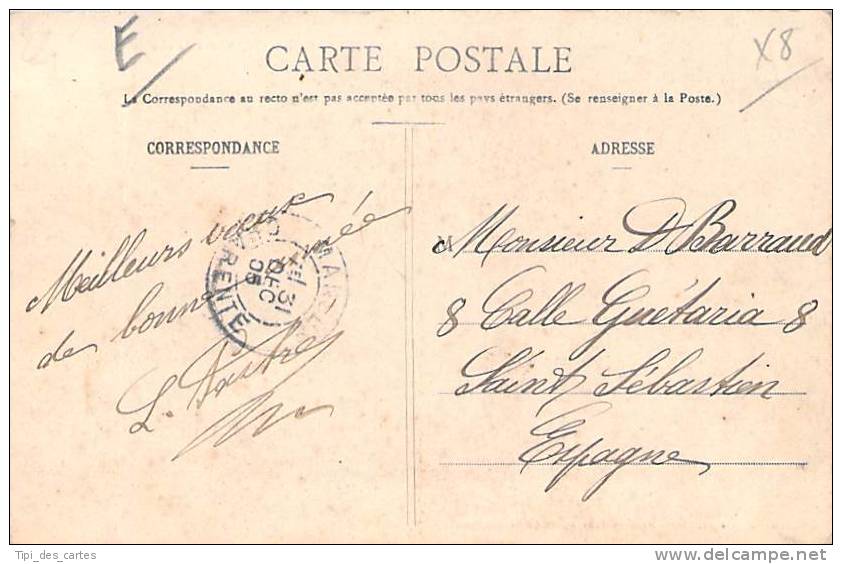 E
X8
CARTE POSTALE
La Correspondance au recto n'est pas acceptée par tous les pays étrangers. (Se renseigner à la Poste.)
CORRESPONDANCE
Meilleurs vœux
de bonne année
L.
ADRESSE
M Monsieur D Barraud
8 Calle Guétaria 8
Saint Sébastien
Espagne
31
DEC
05
CHARENTE
Tipi_des_cartes
delcampe.net